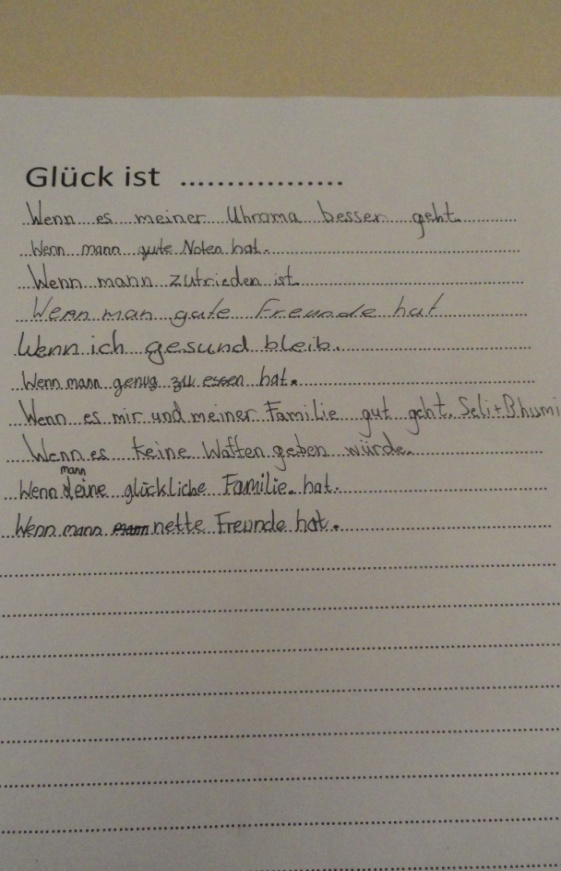 Glück ist .................
Wenn es meiner Uhroma besser geht.
Wenn mann gute Noten hat.
Wenn mann zufrieden ist.
Wenn man gute Freunde hat
Wenn ich gesund bleib.
Wenn mann genug zu essen hat.
Wenn es mir und meiner Familie gut geht. Seli+Bhumi
Wenn es keine Waffen geben würde.
Wenn mann eine glückliche Familie. hat.
Wenn mann nette Freunde hat.